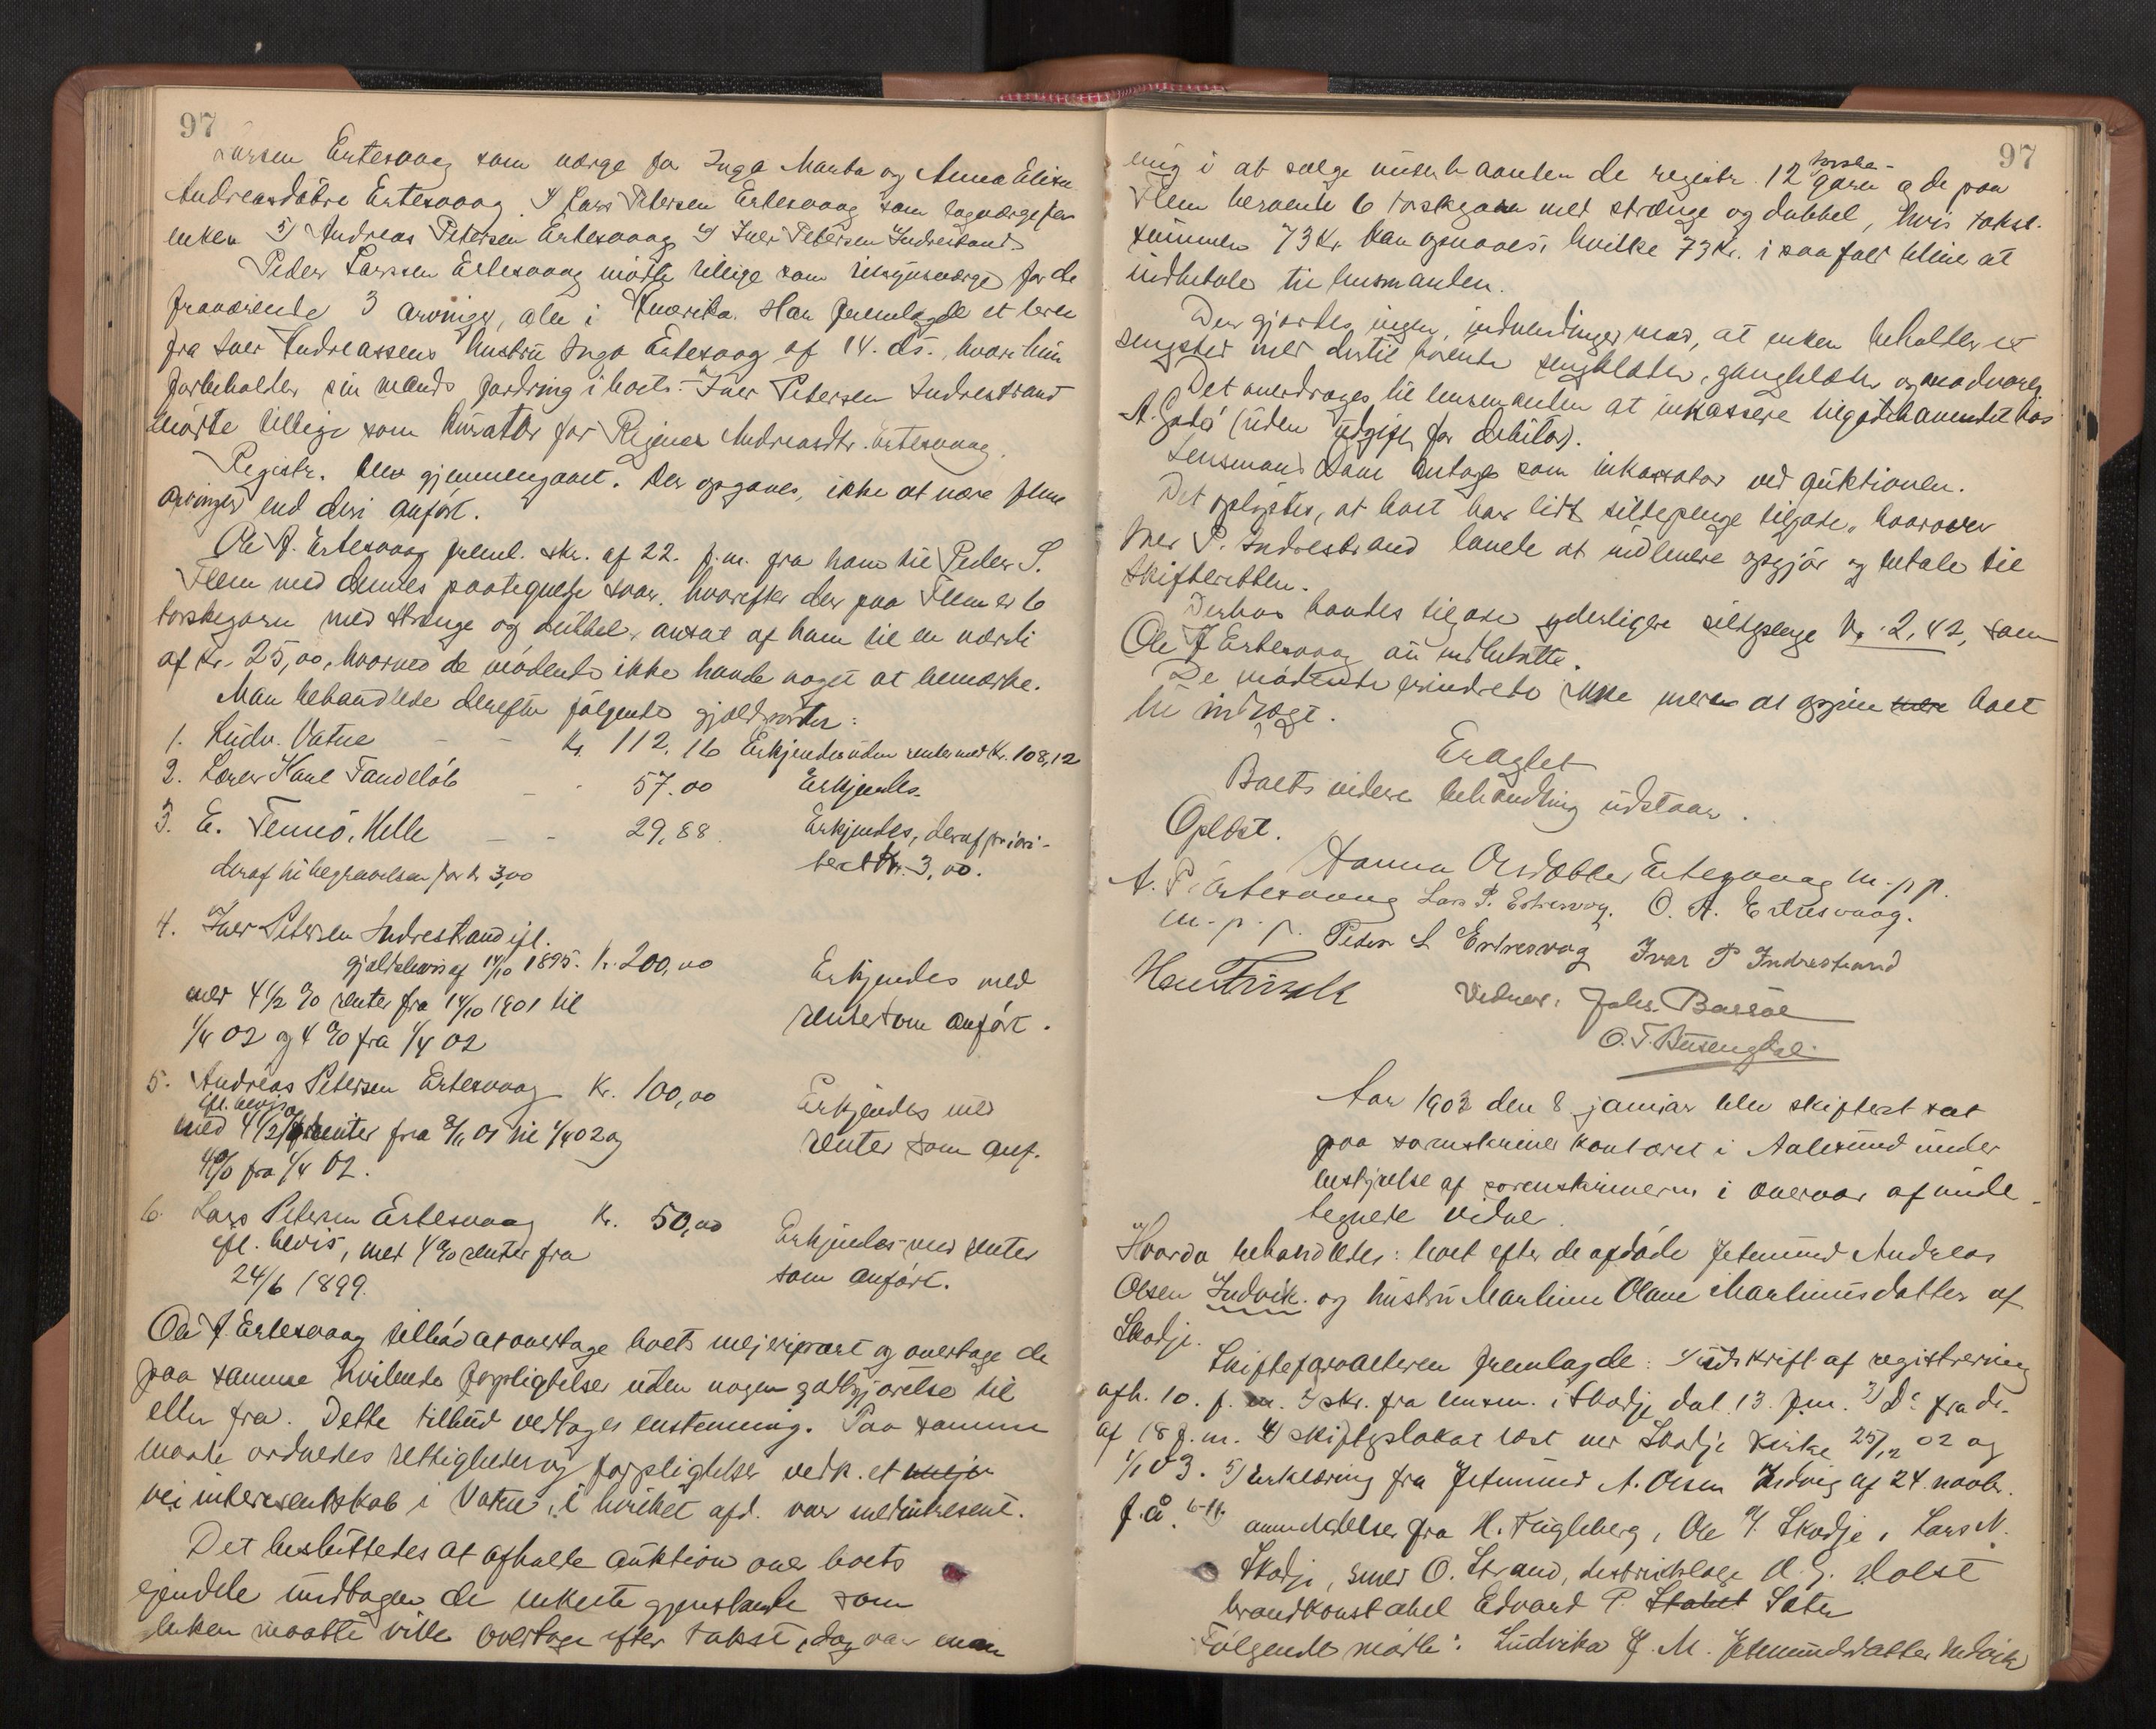 97
Larsen Ertesvaag som værge for Inga Marta og Anna Elise
Andreasdøtre Ertesvaag. 4) Lars Petersen Ertesvaag som lagværge for
enken 5) Andreas Petersen Ertesvaag 6) Iver Petersen Indrestrand
Peder Larssen Ertesvaag mødte tillige som tilsynsværge for de
fraværende 3 arvinger, alle i Amerika. Han fremlagde et brev
fra Iver Andreassens hustru Inga Ertesvaag af 14. ds., hvori hun
forbeholder sin mands fordring i boet. - Iver Petersen Indrestrand
mødte tillige som kurator for Regine Andreasdtr. Ertesvaag.
Registr. blev gjennemgaaet. Der opgaves, ikke at være flere
arvinger end deri anført.
Ole A. Ertesvaag freml. skr. af 22. f.m. fra ham til Peder S.
Flem med dennes paategnede svar, hvorefter der paa Flem er 6
torskegarn med strenge og dubbel, ansat af ham til en værdi
af kr. 25,00, hvorved de mødende ikke havde noget at bemærke.
Man behandlede derefter følgende gjældsposter:
1. Ludv. Vatne - - kr. 112,16 Erkjendes uden renter med kr. 108,12
2. Lærer Karl Fandeløb - - 57.00 Erkjendes.
3. E. Tennø, Helle - - 29,88. Erkjendes, deraf priori-
deraf til begravelsen for kr 3,00 tert kr. 3,00.
4. Iver Petersen Indrestrand ifl.
gjældsbevis af 14/10 1895. kr. 200,00 Erkjendes med
med 4 1/2 % renter fra 14/10 1901 til renter som anført.
1/4 02 og 4 % fra 1/4 02
5. Andreas Petersen Ertesvaag kr. 100,00 Erkjendes med
ifl. bevis
med 4 1/2 % renter fra til 1/4 02 og renter som anf.
4 % fra 1/4 02.
6. Lars Petersen Ertesvaag kr. 50,00 Erkjendes med renter
ifl. bevis, med 4 % renter fra som anført.
24/6 1899.
Ole A. Ertesvaag tilbød at overtage boets mejeripart og overtage de
paa samme hvilende forpligtelser uden nogen godtgjørelse til
eller fra. Dette tilbud vedtages enstemmig. Paa samme
maate ordnedes rettigheder og forpligtelser vedk. et meje
vei interessentskab i Vatne, i hvilket afd. var medintresent.
Det besluttedes at afholde auktion over boets
eiendele undtagen de enkelte gjenstande som
enken maatte ville overtage efter takst, dog var man
97
enig i at sælge underhaanden de registr. 12 torske-
garn og de paa
Flem beroende 6 torskegarn med strenge og dubbel, hvis takst-
summen 73 kr. kan opnaaes, hvilke 73 kr. i saa fald bliver at
indbetale til lensmanden.
Der gjordes ingen indvendinger mod, at enken beholder et
sengsted med dertil hørende sengklæder, gangklæder og madvarer
Det overdrages til lensmanden at inkassere tilgodehavendet hos
A. Gadø (uden udgift for debitor).
Lensmand Dave antages som inkassator ved auktionen.
Det oplystes, at boet har lidt sildepenge tilgode, hvorover
Iver P. Indrestrand lovede at indlevere opgjør og betale til
skifteretten.
Derhos havdes tilgode yderligere sildepenge kr. 2,42, som
Ole A Ertesvaag nu indbetalte.
De mødende erindrede ikke mere at opgive være boet
til indtægt.
Eragtet
Boets videre behandling udstaar.
Oplæst.
Hanna Olsdatter Ertesvaag m.p.p.
A. P. Ertesvaag Lars P. Ertesvaag. O. A. Ertesvaag.
m.p.p. Peder L Ertresvag Ivar P Indrestrand
Vidner: Johs. Bassøe
O. T. Busengdal
Aar 1903 den 8 januar blev skifteret sat
paa sorenskriverkontoret i Aalesund under
bestyrelse af sorenskriveren i overvær af unde-
tegnede vidner.
Hvorda behandledes: boet efter de afdøde Jetmund Andreas
Olsen Indvik. og hustru Martine Olave Martinusdatter af
Skodje.
Skifteforvalteren fremlagde: 1) udskrift af registrering
afh. 10. f. m. 2) skr. fra lensm. i Skodje dat. 13. f.m. 3) Do fra do.
af 18 f.m. 4) skifteplakat læst ved Skodje kirke 25/12 02 og
1/1 03. 5) Erklæring fra Jetmund A. Olsen Indvig af 24. novbr.
f. å. 6-11. anmeldelser fra H. Fugleberg, Ole J. Skodje, Lars N.
Skodje, smed O. Strand, destriktslæge H. G. Holst
brandkonstabel Edvard P. Stahet Sæter
Følgende mødte: Ludvika J. M. Jetmundsdatter Indvik